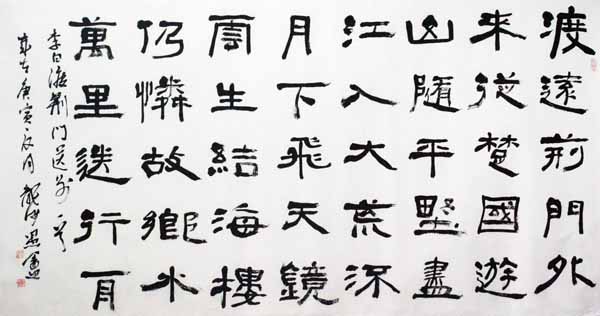 渡遠荊門外
来從楚國遊
山隨平野盡
江入大荒流
月下飛天鏡
雲生結海樓
仍憐故鄉水
萬里送行舟
李白渡荊門送别一首
歲在庚寅